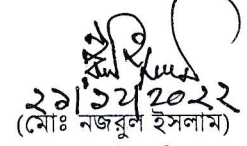 ২১/১২/২০২২
(মোঃ নজরুল ইসলাম)